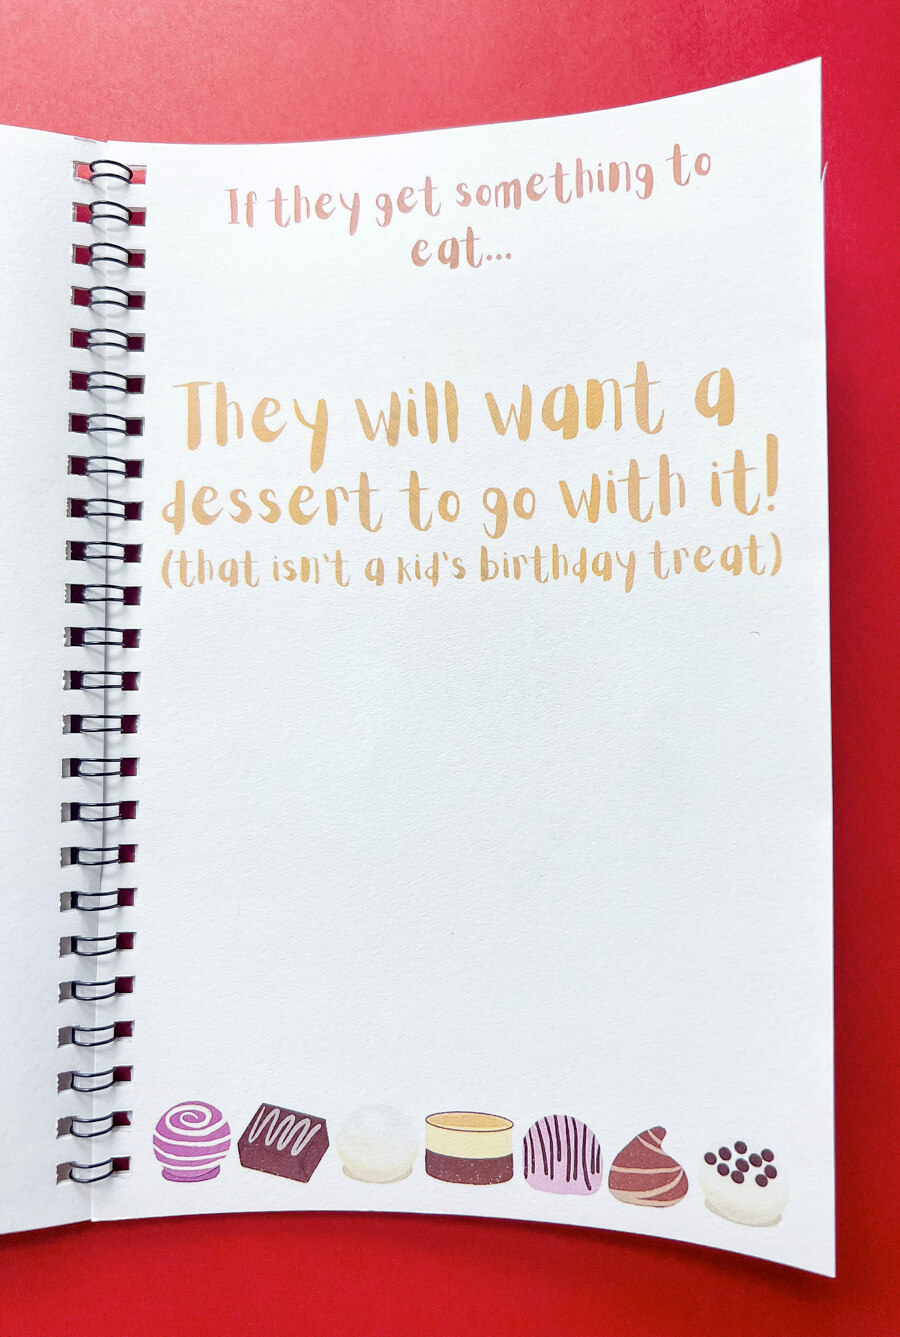 If they get something to
eat...
They will want a
dessert to go with it!
(that isn't a kid's birthday treat)